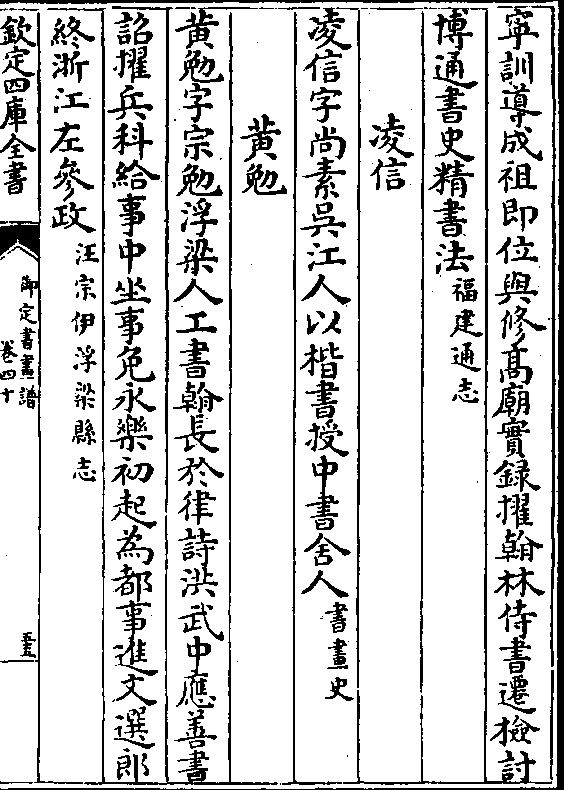 寜訓導成祖即位與修髙廟實録擢翰林侍書遷檢討
博通書史精書法福建通志
凌信
凌信字尚素吳江人以楷書授中書舍人書畫史
黄勉
黄勉字宗勉浮梁人工書翰長於律詩洪武中應善書
詔擢兵科給事中坐事免永樂初起為都事進文選郎
終浙江左參政汪宗伊浮梁縣志
欽定四庫全書
御定書畫譜
卷四十